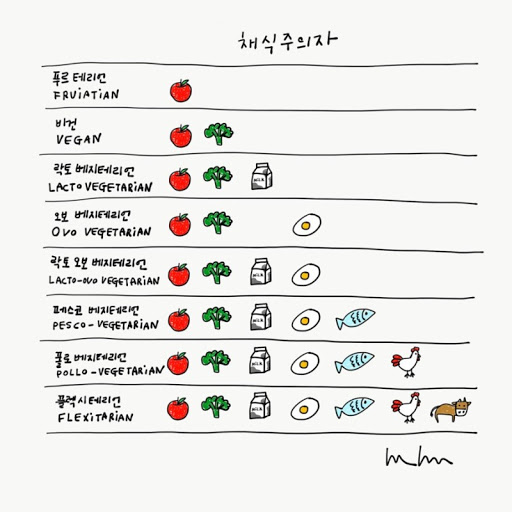 채식주의자
푸르테리언
FRUITATIAN
비건
VEGAN
락토 베지테리언
LACTO VEGETARIAN
오보 베지테리언
OVO VEGETARIAN
락토 오보 베지테리언
LACTO-OVO VEGETARIAN
페스코 베지테리언
PESCO-VEGETARIAN
폴로 베지테리언
POLLO-VEGETARIAN
플렉시테리언
FLEXITARIAN